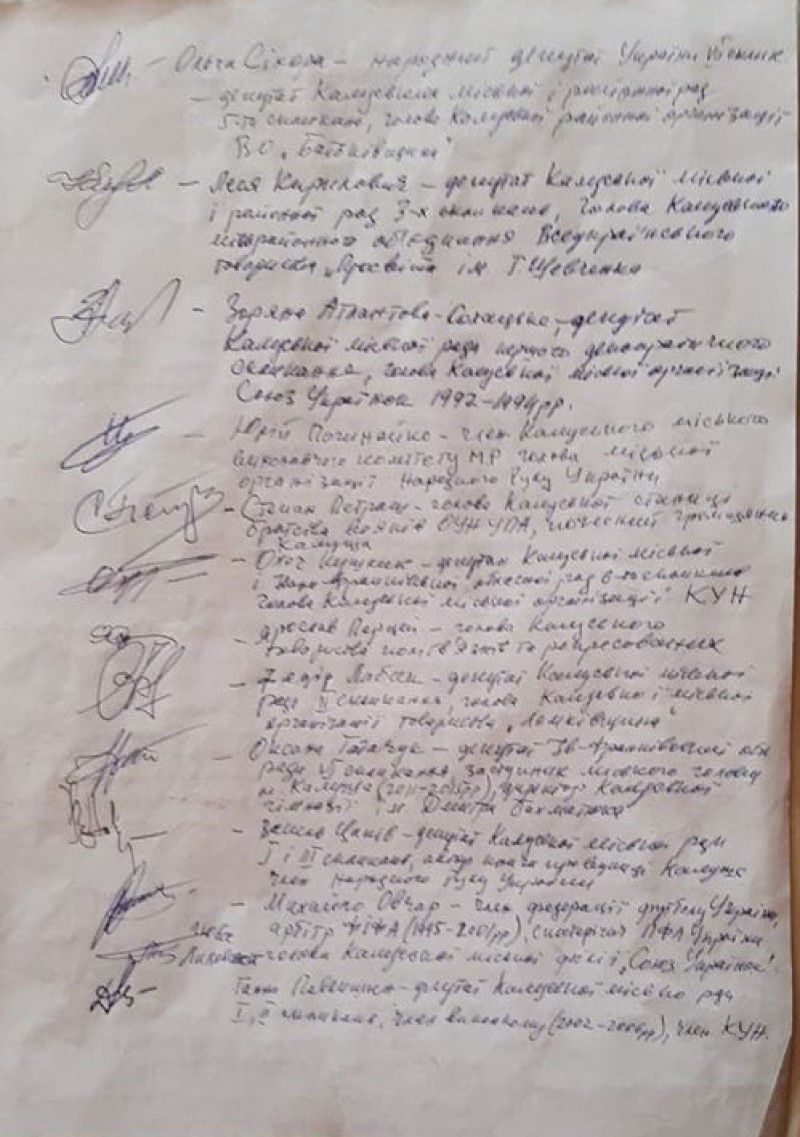 – Ольга Сікора – народний депутат України VI склик
– депутат Калуської міської і районної рад
5-ти скликань, голова Калуської районної організації
ВО „Батьківщина"
– Леся Кирилович – депутат Калуської міської
і районної рад 3-х скликань, голова Калуського
міжрайонного об'єднання Всеукраїнського
товариства „Просвіта" ім Т. Шевченка
– Зоряна Атлантова – депутат
Калуської міської ради першого демократичного
скликання, голова Калуської міської організації
Союз Українок 1992-1994рр.
– Юрій Починайко – член Калуського міського
виконавчого комітету МР голова міської
організації Народного Руху України
– Степан Петраш – голова Калуської станиці
братства вояків ОУН УПА, почесний громадянин
Калуша
– депутат Калуської міської
і Івано-Франківської обласної рад скликання
голова Калуської міської організації КУН
– голова Калуського
товариства політв'язнів та репресованих
– депутат Калуської міської
ради II скликання, голова Калуської міської
організації товариства „Лемківщина"
– Оксана – депутат Ів-Франківської обл
ради VI скликання заступник міського голови
м. Калуша (2011-2015рр), директор Калуської
гімназії ім. Дмитра Бахматюка
– Ценів – депутат Калуської міської ради
I і III скликань, автор Калуша
член народного Руху України
– Овчар – член федерації футболу України,
арбітр ФІФА (1995-2001рр), ПФЛ України
– голова Калуської міської філії „Союз Українок".
Ганна – депутат Калуської міської ради
I, II скликань, член виконкому (2002-2006рр), член КУН.